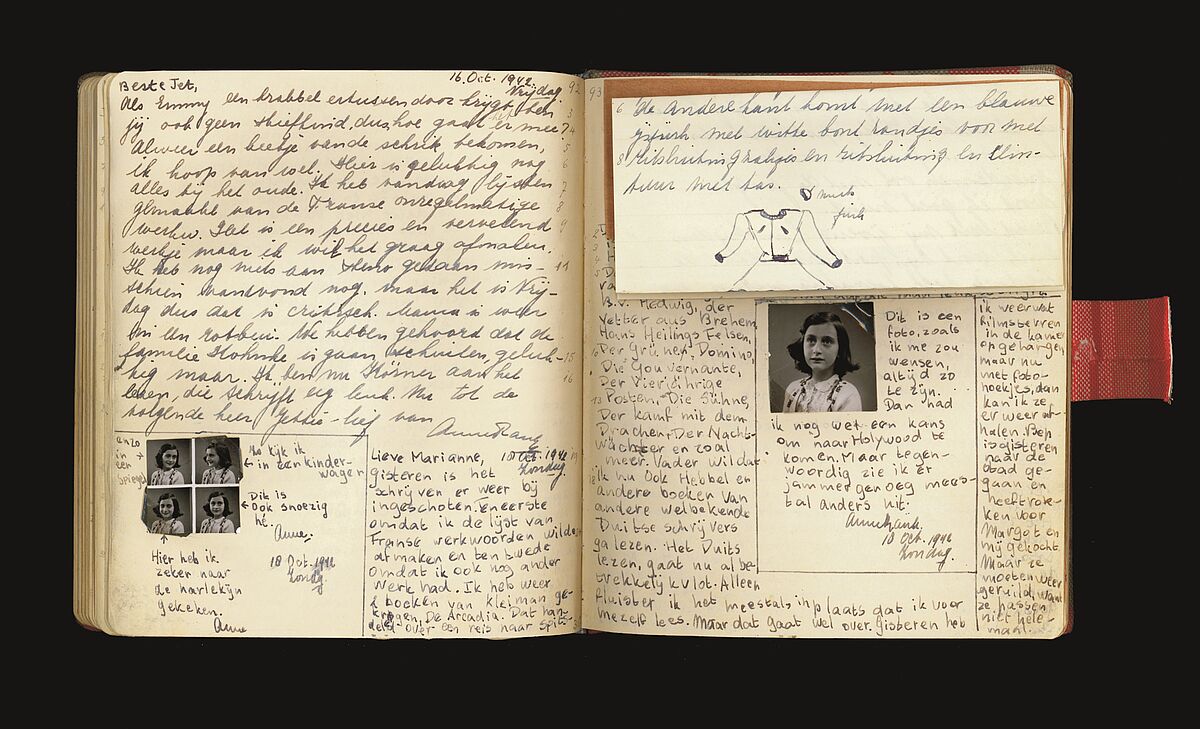 16. Oct. 1942.
Vrijdag.
92
Beste Jet,
Als Emmy een krabbel ertussen door krijgt, ben
jij ook geen stiefkind, dus hoe gaat het er mee?
Alweer een beetje van de schrik bekomen,
ik hoop van wel. Hier is gelukkig nog
alles bij het oude. Ik heb vandaag lijsten
gemaakt van de Franse onregelmatige
werkw. Het is een precies en vervelend
werkje maar ik wil het graag afmaken.
Ik heb nog niets aan Steno gedaan mis-
schien vanavond nog, maar het is Vrij-
dag dus dat is critisch. Mama is weer
in een rotbui. We hebben gehoord dat de
familie is gaan schuilen, geluk-
kig maar. Ik ben nu Körner aan het
lezen, die schrijft erg leuk. Nu tot de
volgende keer Jettie-lief van
Anne Frank
3
4
5
6
7
8
9
11
15
16
en zo
in
een
spiegel
Zo kijk ik
in een kinder-
wagen
Dit is
ook snoezig
hé.
Anne.
18 Oct. 1942
Zondag.
Hier heb ik
zeker naar
de harlekijn
gekeken.
Anne
Lieve Marianne,
18 Oct. 1942
Zondag.
gisteren is het
schrijven er weer bij
ingeschoten. Ten eerste
omdat ik de lijst van
Franse werkwoorden wilde
afmaken en ten twede
omdat ik ook nog ander
werk had. Ik heb weer
2 boeken van Kleiman ge-
kregen, De Arcadia. Dat han-
deld over een reis naar Spits-
93
6 de andere kant komt met een blauwe
ijsjurk met witte bont randjes voor met
8 ritssluiting zakjes en ritssluiting en cein-
tuur met tas.
muts
jurk
B.v. Hedwig, der
Vetter aus Bremen,
Hans Heilings Felsen,
Der Grünen Domino,
Die Gouvernante,
Der Vierjährige
Posten, Die Sühne,
Der Kampf mit dem
Drachen, Der Nacht-
wächter en zoal
meer. Vader wil dat
ik nu ook Hebbel en
andere boeken van
andere welbekende
Duitse schrijvers
ga lezen. Het Duits
lezen, gaat nu al be-
trekkelijk vlot. Alleen
fluister ik het meestal in plaats dat ik voor
mezelf lees. Maar dat gaat wel over. Gisteren heb
Dit is een
foto, zoals
ik me zou
wensen,
altijd zo
te zijn.
Dan had
ik nog wel een kans
om naar Holywood te
komen. Maar tegen-
woordig zie ik er
jammer genoeg mees-
tal anders uit.
Anne Frank.
18 Oct. 1942
Zondag.
ik weer wat
filmsterren
in de kamer
opgehangen
maar nu
met foto-
hoekjes, dan
kan ik ze
er weer af-
halen. Bep
is gisteren
naar de
stad ge-
gaan en
heeft rok-
ken voor
Margot en
mij gekocht.
Maar ze
moeten weer
geruild, want
ze passen
niet hele-
maal.